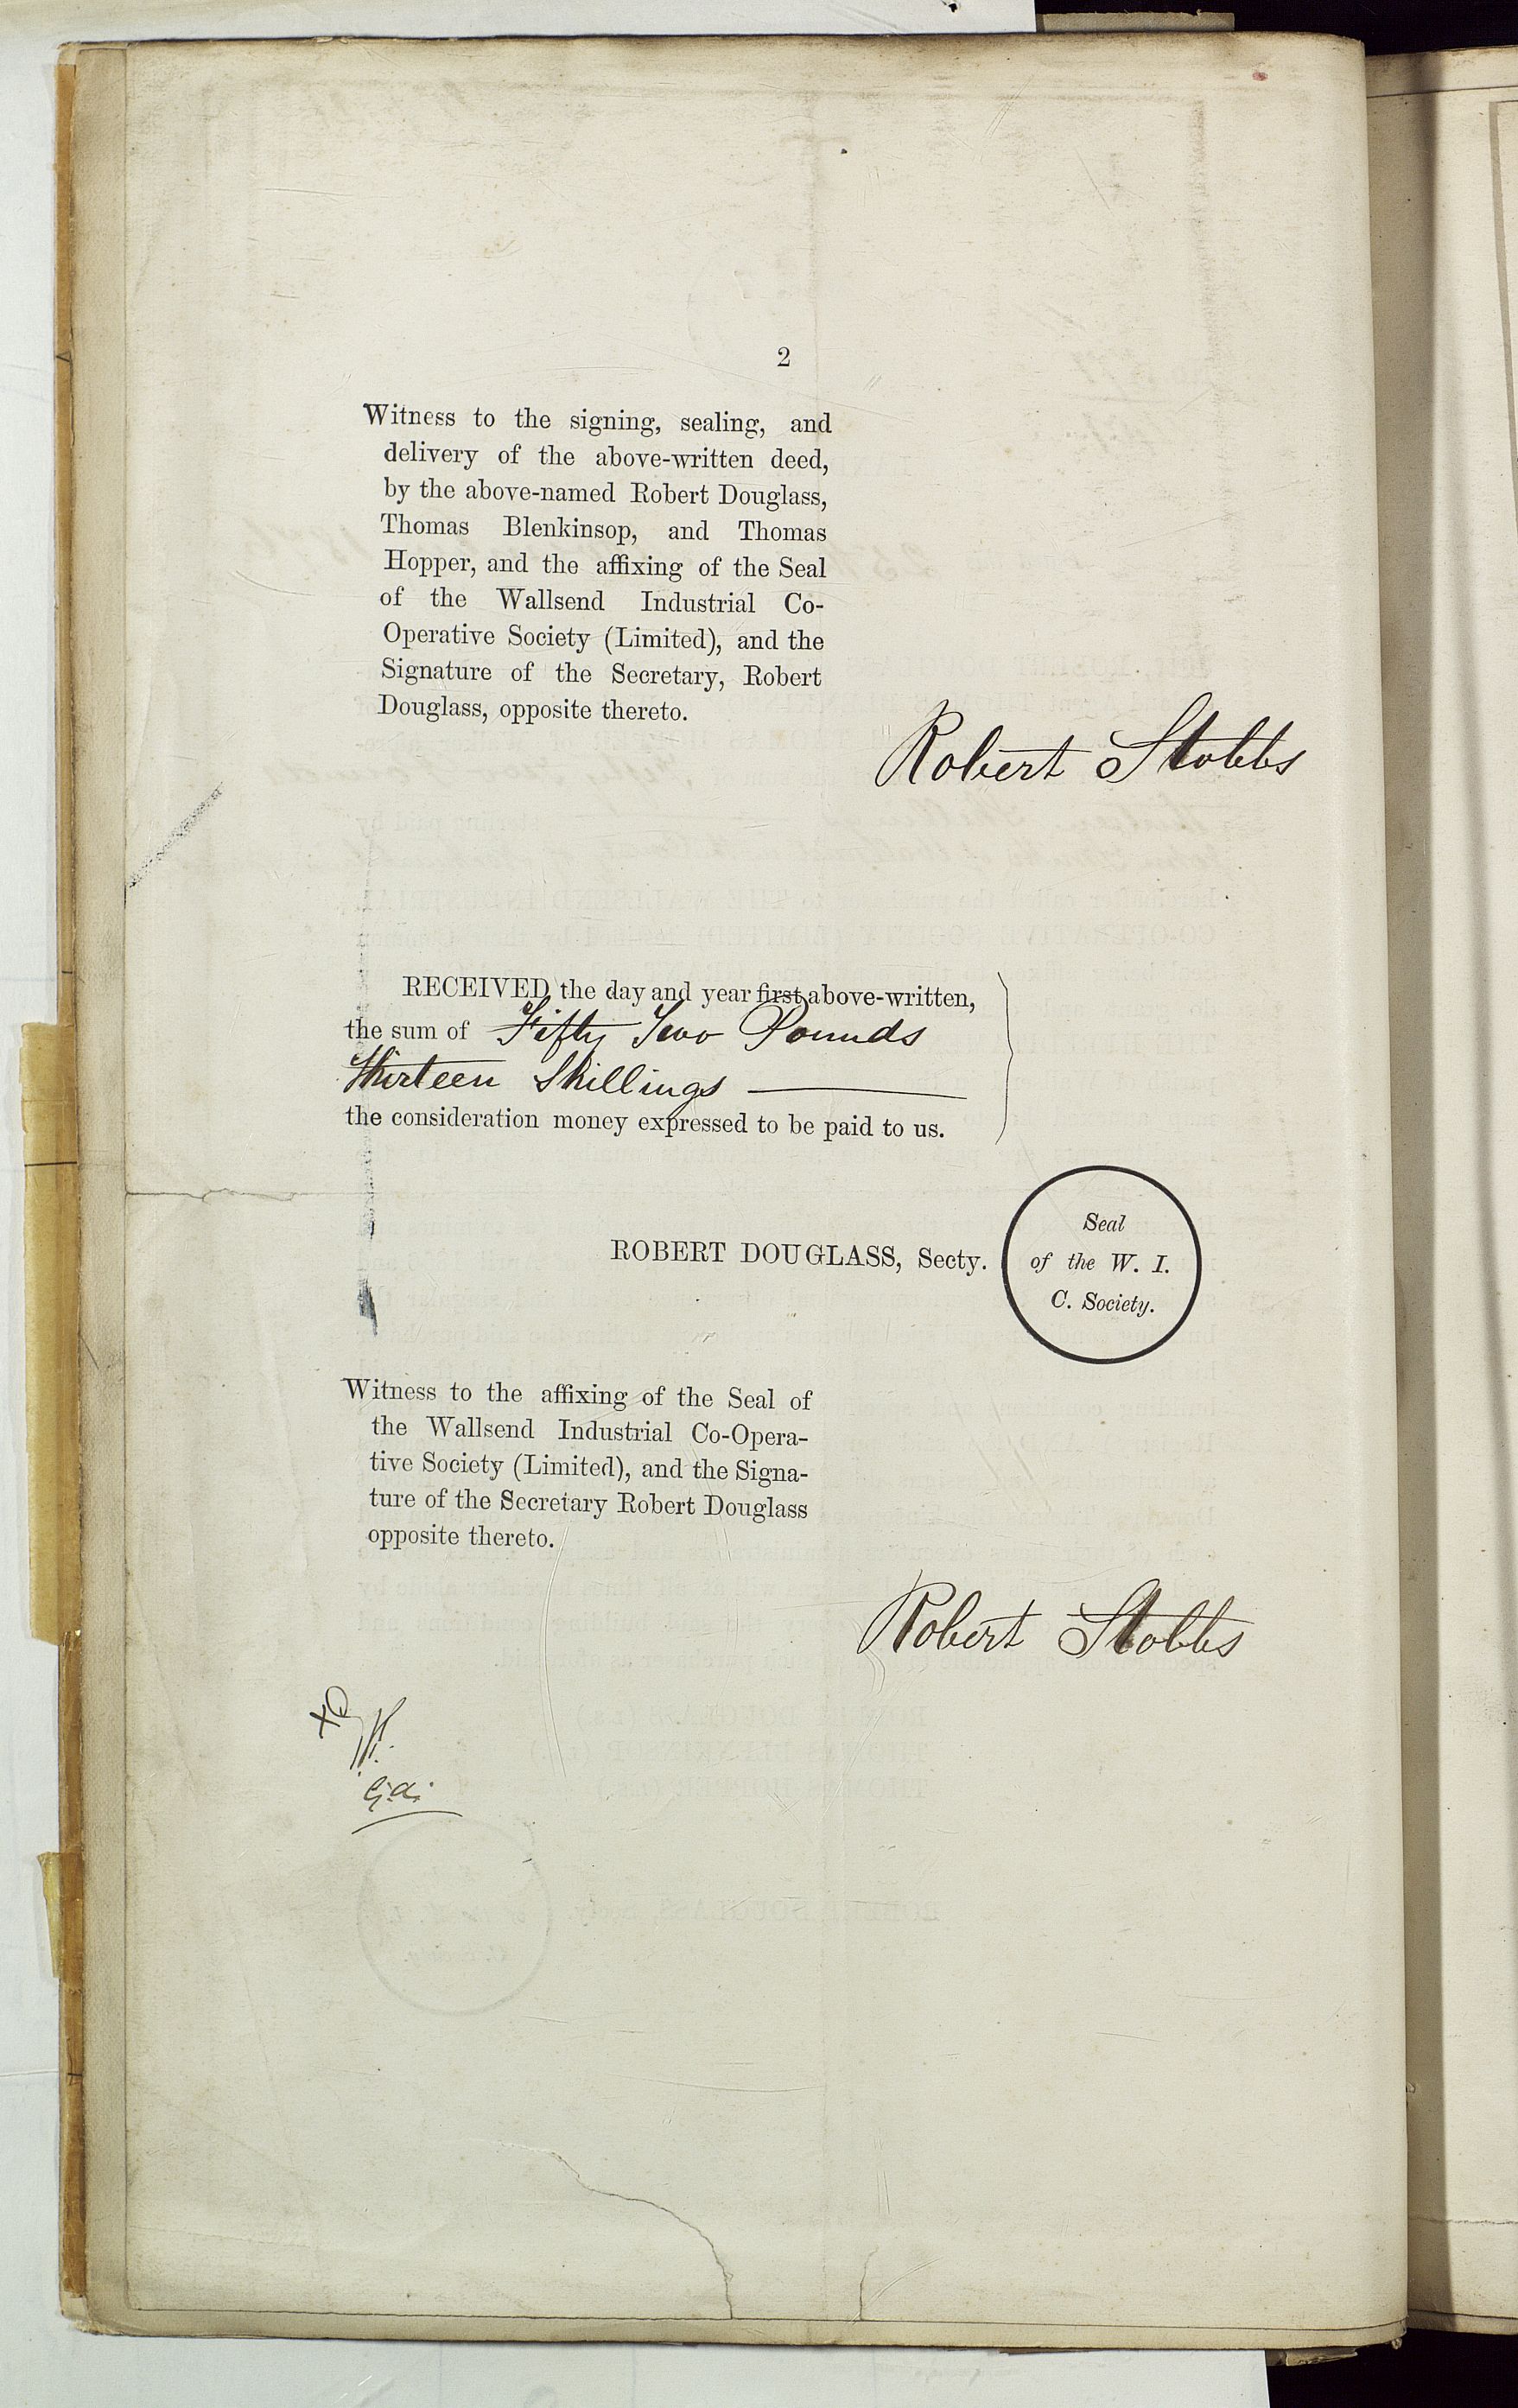 2
Witness to the signing, sealing, and
delivery of the above-written deed,
by the above-named Robert Douglass,
Thomas Blenkinsop, and Thomas
Hopper, and the affixing of the Seal
of the Wallsend Industrial Co-
Operative Society (Limited), and the
Signature of the Secretary, Robert
Douglass, opposite thereto.
Robert Stobbs
RECEIVED the day and year first above-written,
the sum of Fifty Two Pounds
Thirteen Shillings
the consideration money expressed to be paid to us.
ROBERT DOUGLASS, Secty.
Seal
of the W. I.
C. Society.
Witness to the affixing of the Seal of
the Wallsend Industrial Co-Opera-
tive Society (Limited), and the Signa-
ture of the Secretary Robert Douglass
opposite thereto.
Robert Stobbs